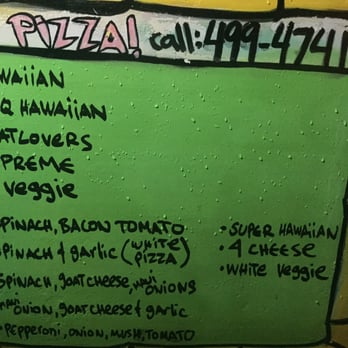 PIZZA! call: 499-4741
WAiiAN
Q HAWAiiAN
ATLOVERS
PREME
veggie
PiNACH, BACON TOMATO
SPiNACH & GARLiC (WHITE PIZZA)
SPiNACH, goAT CHEESE, MAUI ONiONS
MAUI ONiON, goAT CHEESE & gARLiC
• PEPPERONi, ONiON, MUSH, TOMATO
• SUPER HAWAiiAN
• 4 CHEESE
• WHITE Veggie